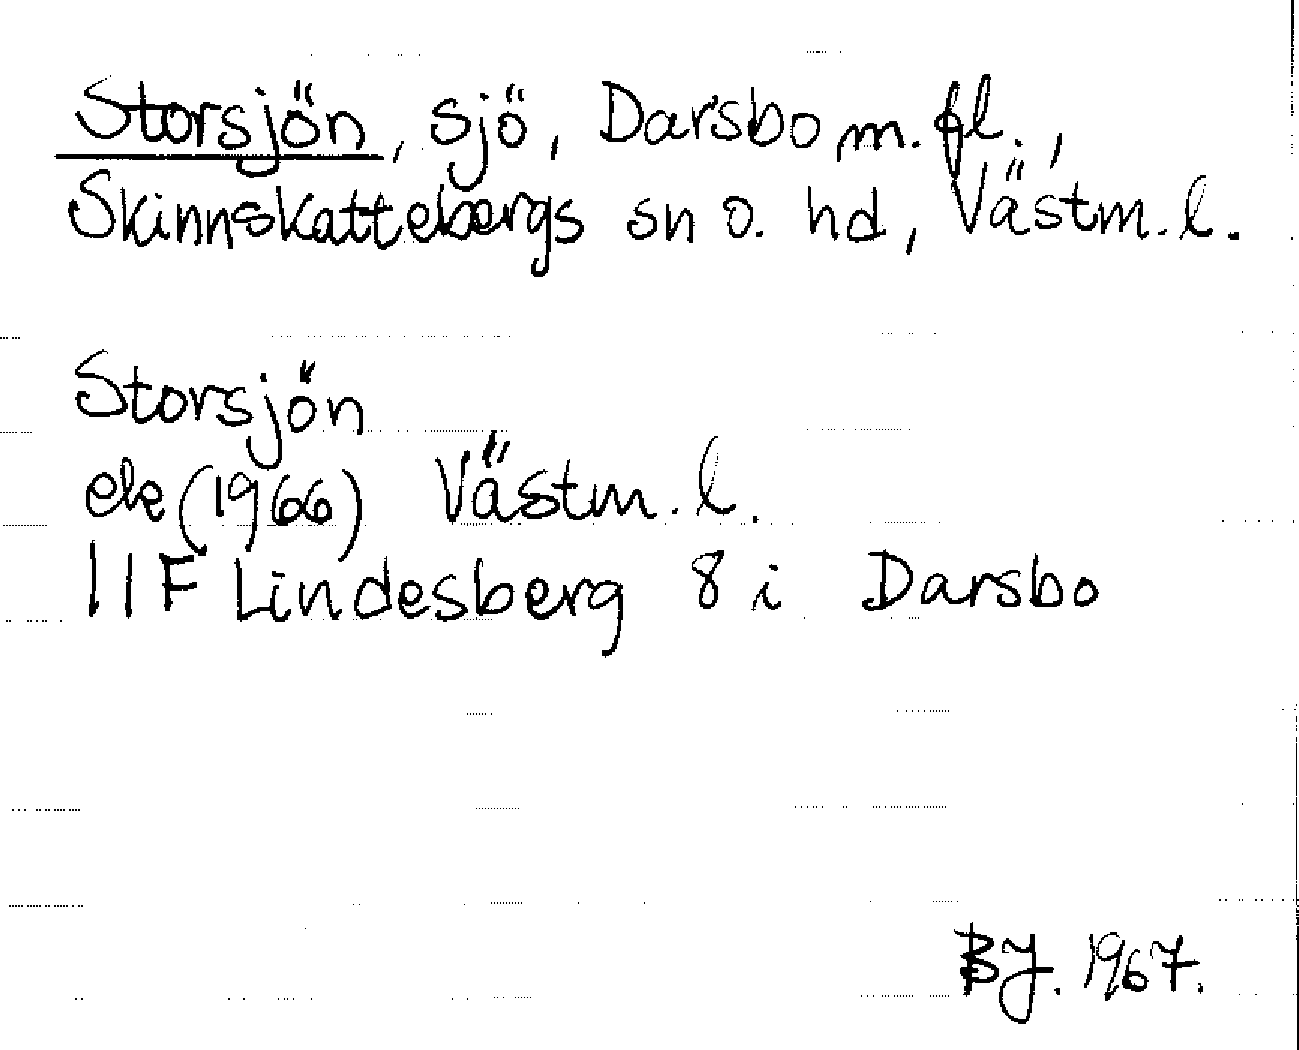 Storsjön, sjö, Darsbo m. fl.,
Skinnskattebergs sn o. hd, Västm. l.
Storsjön
ek (1966) Västm. l.
11F Lindesberg 8 i Darsbo
BJ. 1967.